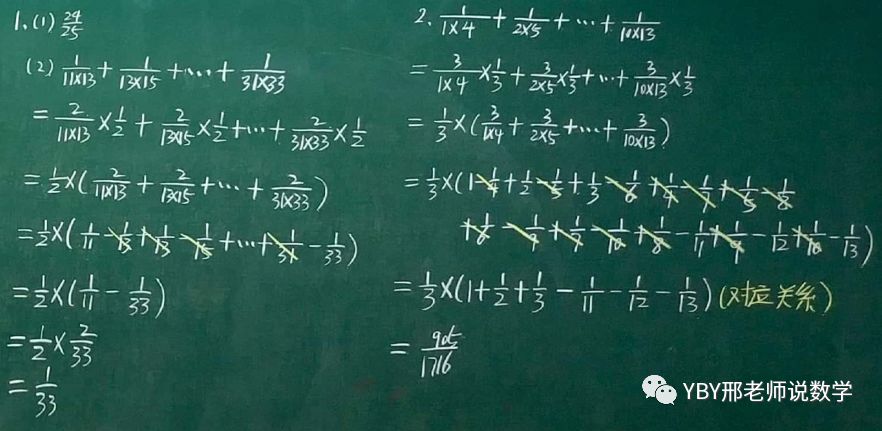 1.(1) 24/25
(2) 1/11×13 + 1/13×15 +…+ 1/31×33
= 2/11×13 ×1/2 + 2/13×15 ×1/2 +…+ 2/31×33 ×1/2
= 1/2×( 2/11×13 + 2/13×15 +…+ 2/31×33 )
= 1/2×( 1/11 - 1/13 + 1/13 - 1/15 +…+ 1/31 - 1/33 )
= 1/2×( 1/11 - 1/33 )
= 1/2 × 2/33
= 1/33
2. 1/1×4 + 1/2×5 +…+ 1/10×13
= 3/1×4 ×1/3 + 3/2×5 ×1/3 +…+ 3/10×13 ×1/3
= 1/3×( 3/1×4 + 3/2×5 +…+ 3/10×13 )
= 1/3×(1 - 1/4 + 1/2 - 1/5 + 1/3 - 1/6 + 1/4 - 1/7 + 1/5 - 1/8
+ 1/6 - 1/9 + 1/7 - 1/10 + 1/8 - 1/11 + 1/9 - 1/12 + 1/10 - 1/13 )
= 1/3×(1 + 1/2 + 1/3 - 1/11 - 1/12 - 1/13 ) (对应关系)
= 905/1716
YBY邢老师说数学